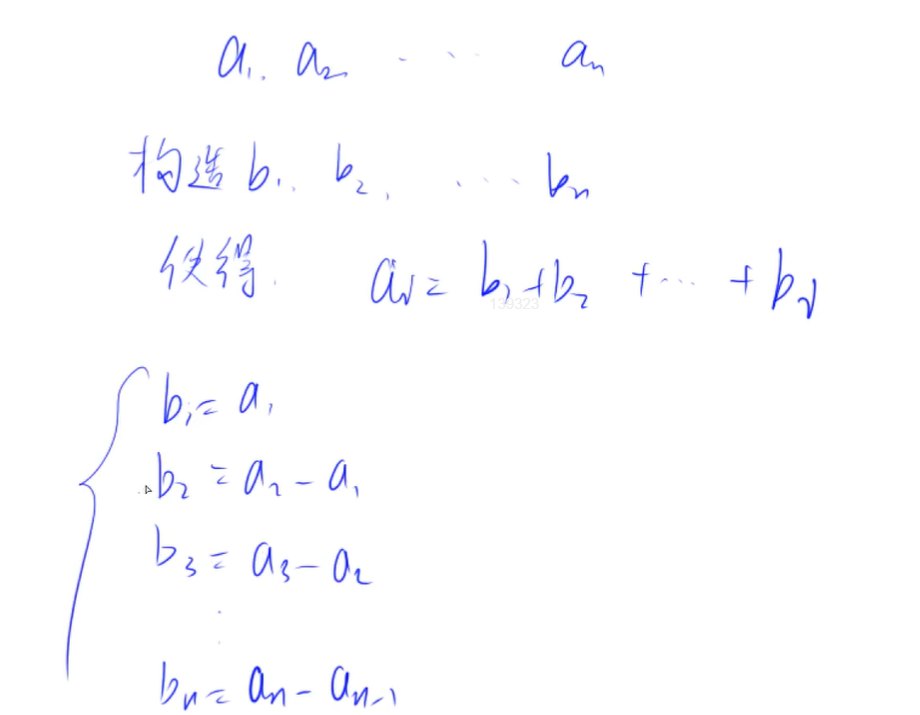 a₁, a₂ ...... aₙ
构造 b₁, b₂, ...... bₙ
使得. aᵢ = b₁+b₂ +...... + bᵢ
139323
b₁ = a₁
b₂ = a₂ - a₁
b₃ = a₃ - a₂
⋮
bₙ = aₙ - aₙ₋₁